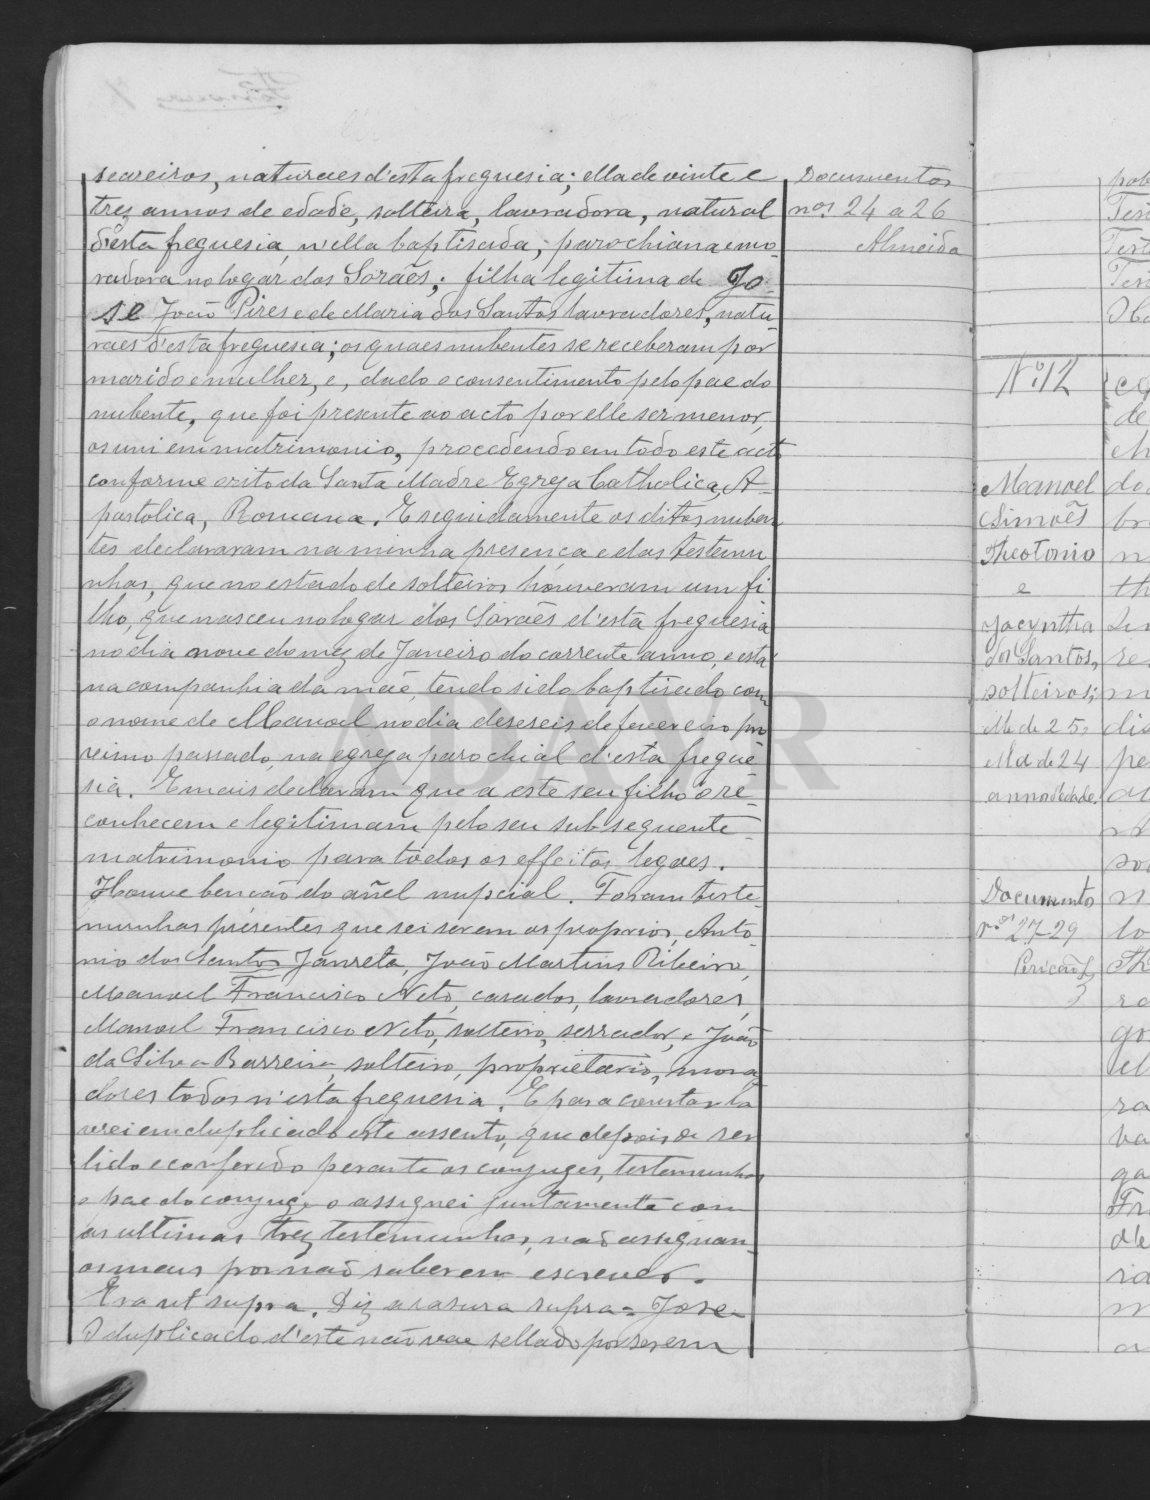 seareiros, naturaes d'esta freguesia; ella de vinte e
trez annos de edade, solteira, lavradora, natural
d'esta freguesia, n'ella baptisada; parochiana e mo-
radora no logar dos Soraes; filha legitima de Jo-
se João Pires e de Maria dos Santos lavradores, natu-
raes d'esta freguesia; os quaes nubentes se receberam por
marido e mulher, e, dado o consentimento pelo pae do
nubente, que foi presente ao acto por elle ser menor,
os uni em matrimonio, procedendo em todo este acto
conforme o rito da Santa Madre Egreja Catholica, A-
postolica, Romana. E seguidamente os ditos nuben
tes declararam na minha presença e das testemu
nhas, que no estado de solteiros houveram um fi
lho, que nasceu no logar dos Soraes d'esta freguesia
no dia nove do mez de Janeiro do corrente anno, e está
na companhia da mãe, tendo sido baptisado com
o nome de Manoel no dia deseseis de fevereiro pro
ximo passado, na egreja parochial d'esta fregue-
sia. E mais declaram que a este seu filho o re-
conhecem e legitimam pelo seu subsequente
matrimonio para todos os effeitos legaes.
Houve benção do anel nupcial. Foram teste-
munhas presentes que sei serem os proprios, Anto-
nio dos Santos Janreta, João Martins Ribeiro,
Manoel Francisco Neto, casados, lavradores,
Manoel Francisco Neto, solteiro, serrador, e João
da Silva Barreira, solteiro, proprietario, mora
dores todos n'esta freguesia. E para constar la
vrei em duplicado este assento, que depois de ser
lido e conferido perante os conjuges, testemunhas
e pae do conjuge o assignei juntamente com
as ultimas trez testemunhas, não assignan-
os mais por não saberem escrever.
Era ut supra. Diz a rasura supra = Jose
O duplicado d'este não vae sellado por serem
Documentos
nos. 24 a 26
Almeida
No. 12
Manoel
Simões
Theotonio
e
Jacyntha
dos Santos,
solteiros;
elle de 25
ella de 24
annos d'edade.
Documentos
nos. 27-29
ADAVR